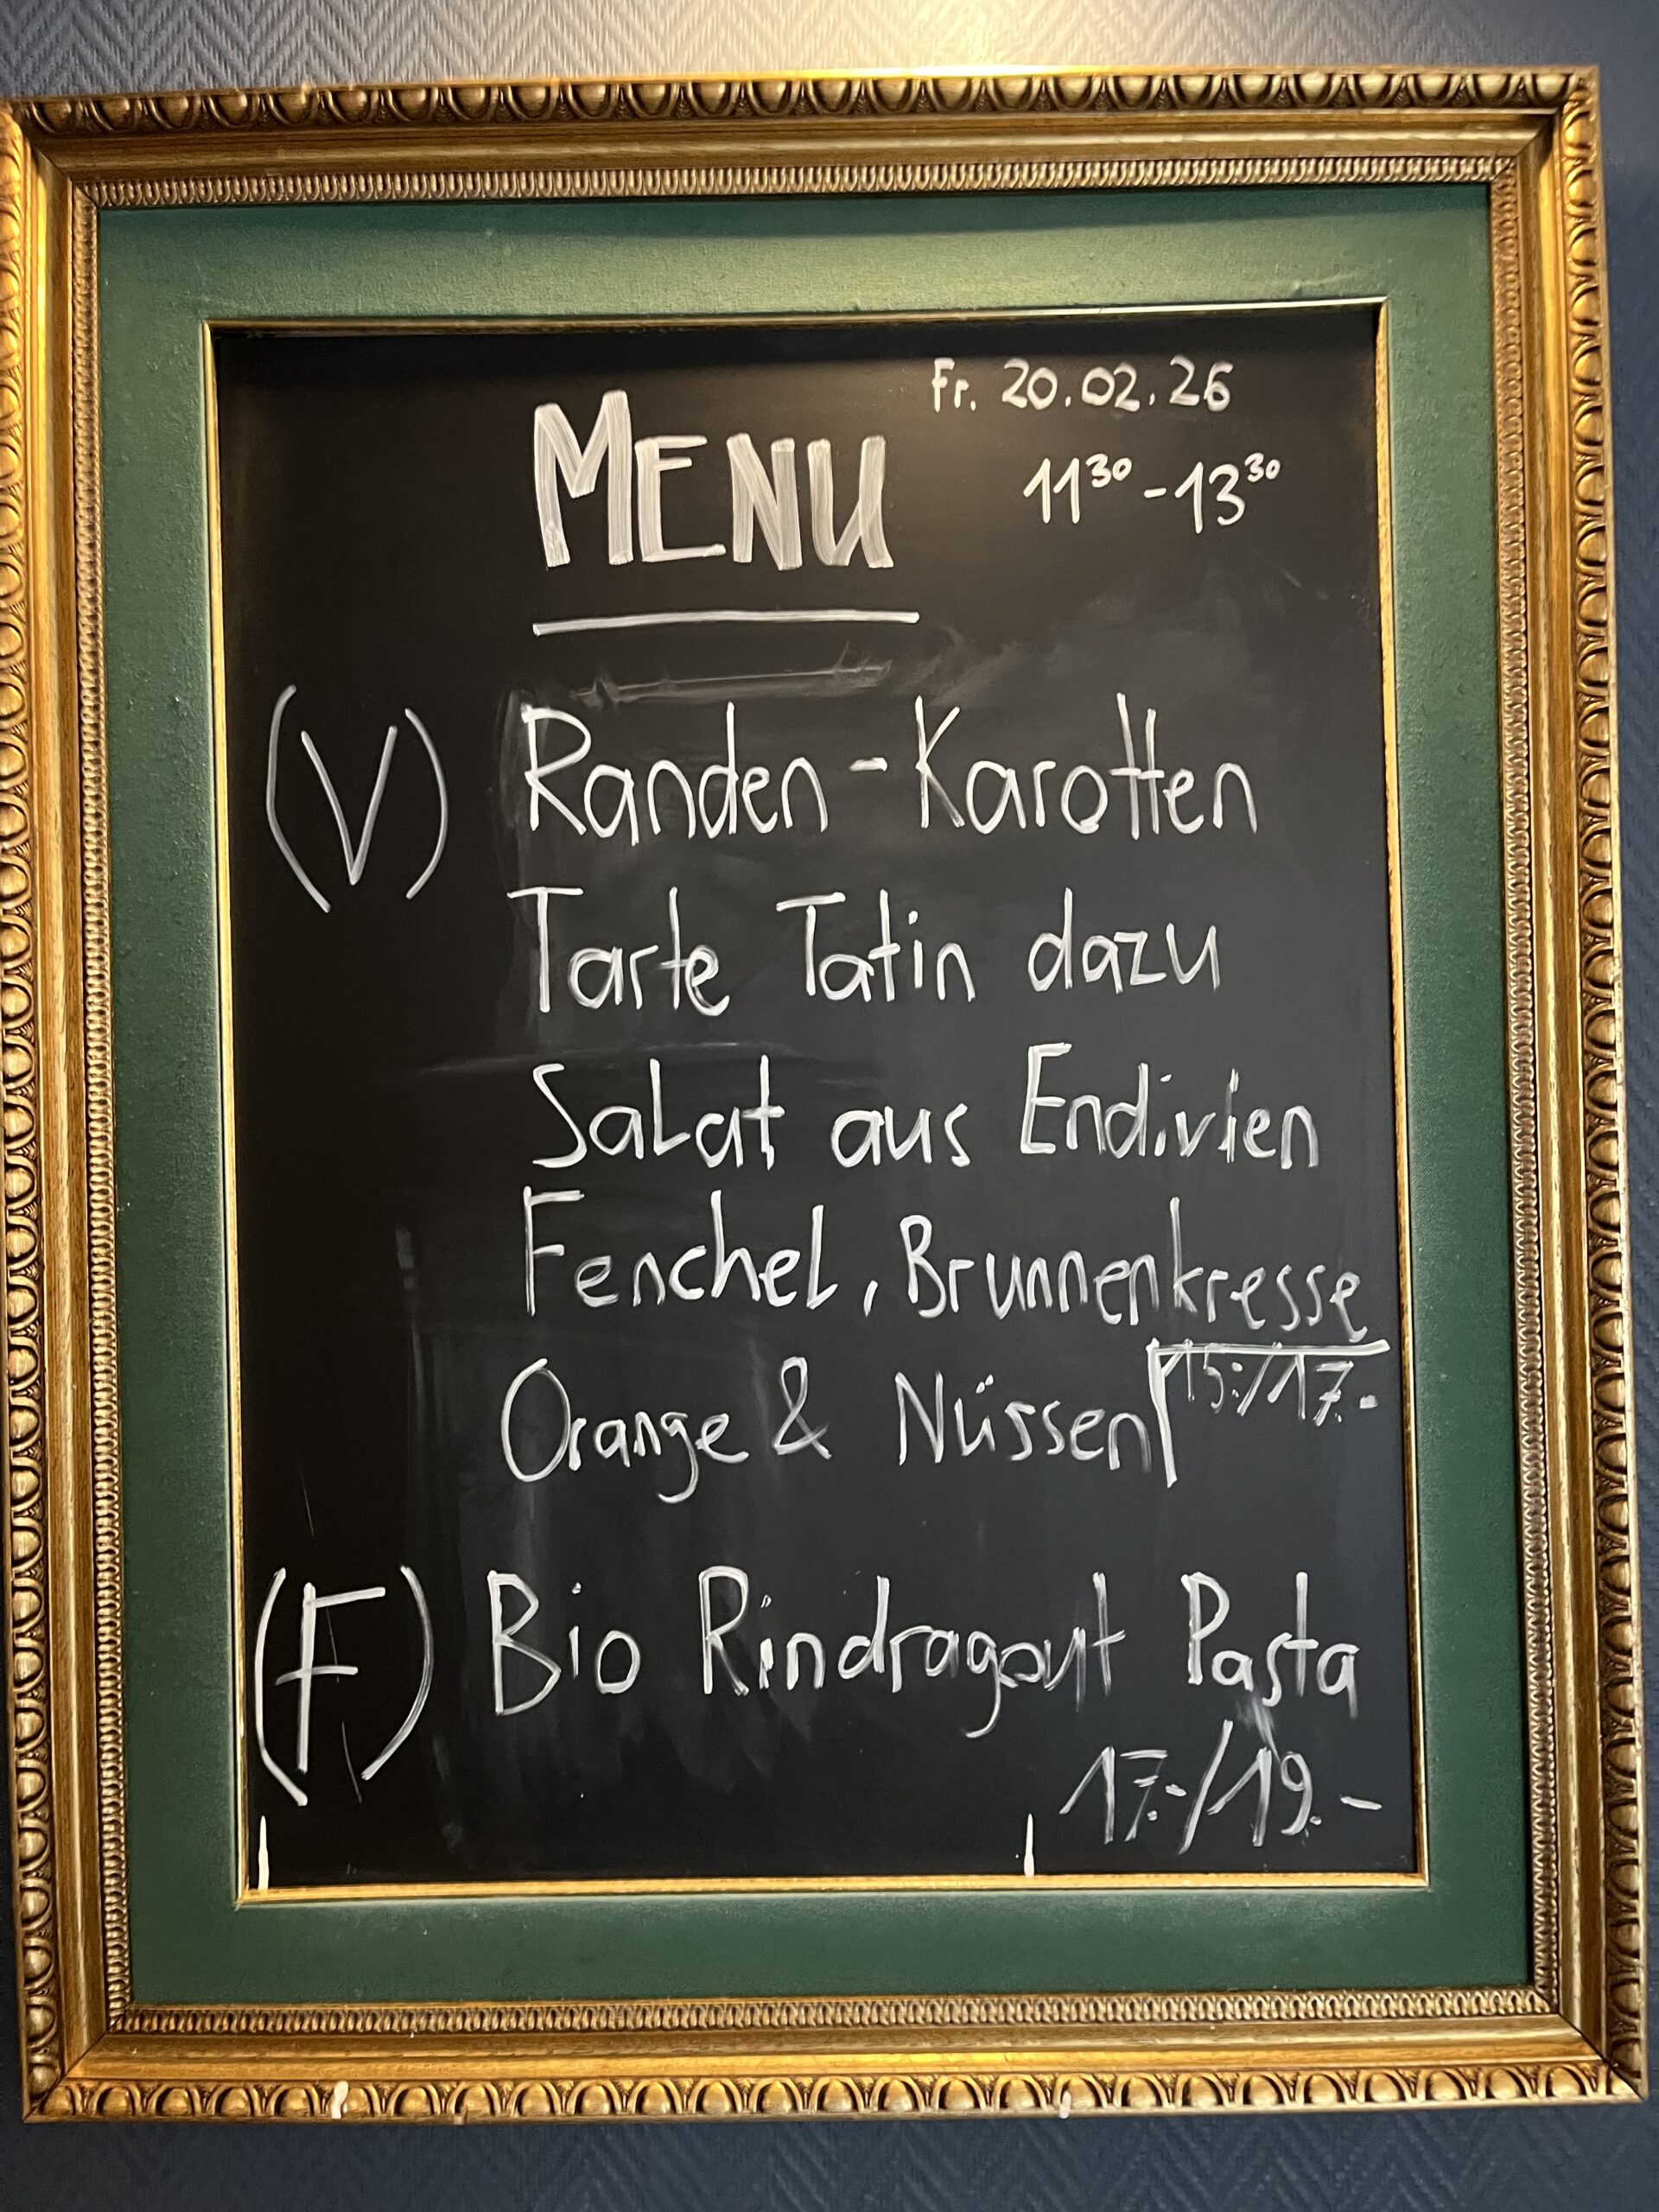 Fr. 20.02.26
MENU
11³⁰ - 13³⁰
(V) Randen - Karotten
Tarte Tatin dazu
Salat aus Endivien
Fenchel, Brunnenkresse
Orange & Nüssen
15.-/17.-
(F) Bio Rindragout Pasta
17.-/19.-